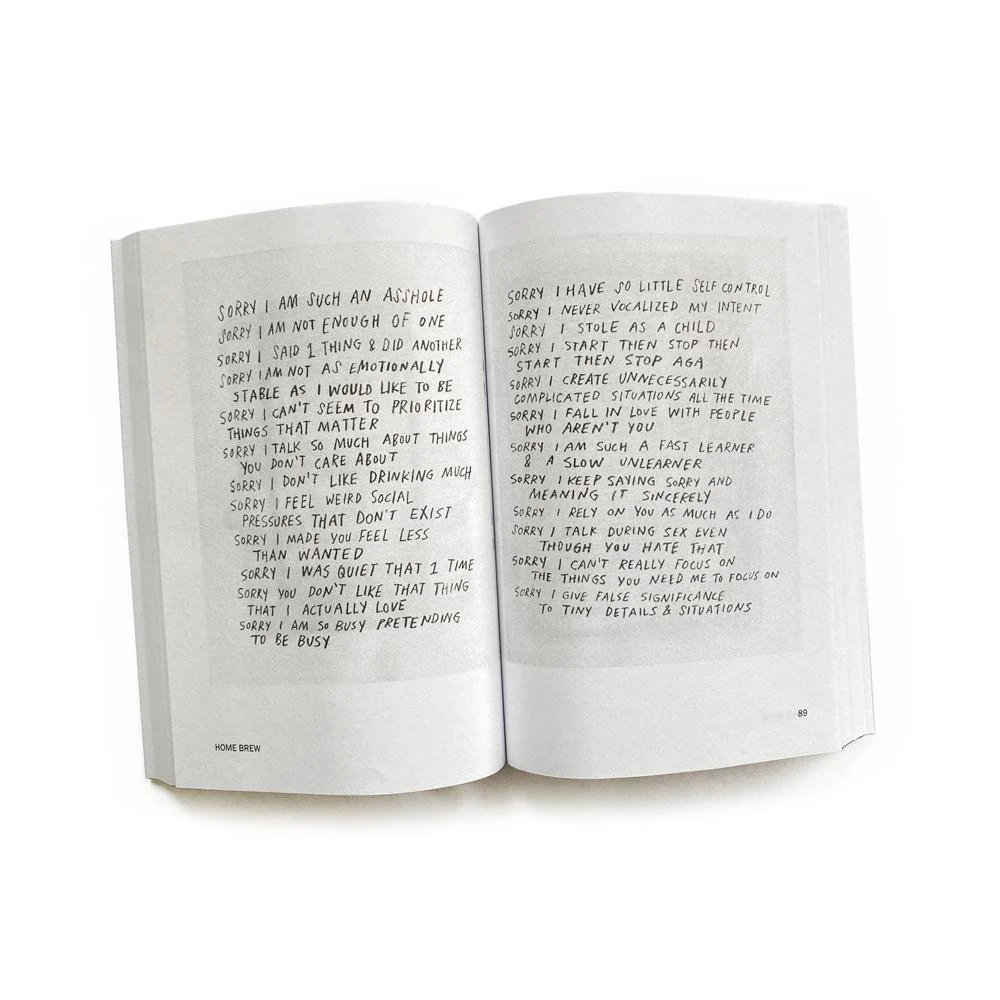 SORRY I AM SUCH AN ASSHOLE
SORRY I AM NOT ENOUGH OF ONE
SORRY I SAID 1 THING & DID ANOTHER
SORRY I AM NOT AS EMOTIONALLY
STABLE AS I WOULD LIKE TO BE
SORRY I CAN'T SEEM TO PRIORITIZE
THINGS THAT MATTER
SORRY I TALK SO MUCH ABOUT THINGS
YOU DON'T CARE ABOUT
SORRY I DON'T LIKE DRINKING MUCH
SORRY I FEEL WEIRD SOCIAL
PRESSURES THAT DON'T EXIST
SORRY I MADE YOU FEEL LESS
THAN WANTED
SORRY I WAS QUIET THAT 1 TIME
SORRY YOU DON'T LIKE THAT THING
THAT I ACTUALLY LOVE
SORRY I AM SO BUSY PRETENDING
TO BE BUSY
HOME BREW
SORRY I HAVE SO LITTLE SELF CONTROL
SORRY I NEVER VOCALIZED MY INTENT
SORRY I STOLE AS A CHILD
SORRY I START THEN STOP THEN
START THEN STOP AGA
SORRY I CREATE UNNECESSARILY
COMPLICATED SITUATIONS ALL THE TIME
SORRY I FALL IN LOVE WITH PEOPLE
WHO AREN'T YOU
SORRY I AM SUCH A FAST LEARNER
& A SLOW UNLEARNER
SORRY I KEEP SAYING SORRY AND
MEANING IT SINCERELY
SORRY I RELY ON YOU AS MUCH AS I DO
SORRY I TALK DURING SEX EVEN
THOUGH YOU HATE THAT
SORRY I CAN'T REALLY FOCUS ON
THE THINGS YOU NEED ME TO FOCUS ON
SORRY I GIVE FALSE SIGNIFICANCE
TO TINY DETAILS & SITUATIONS
89